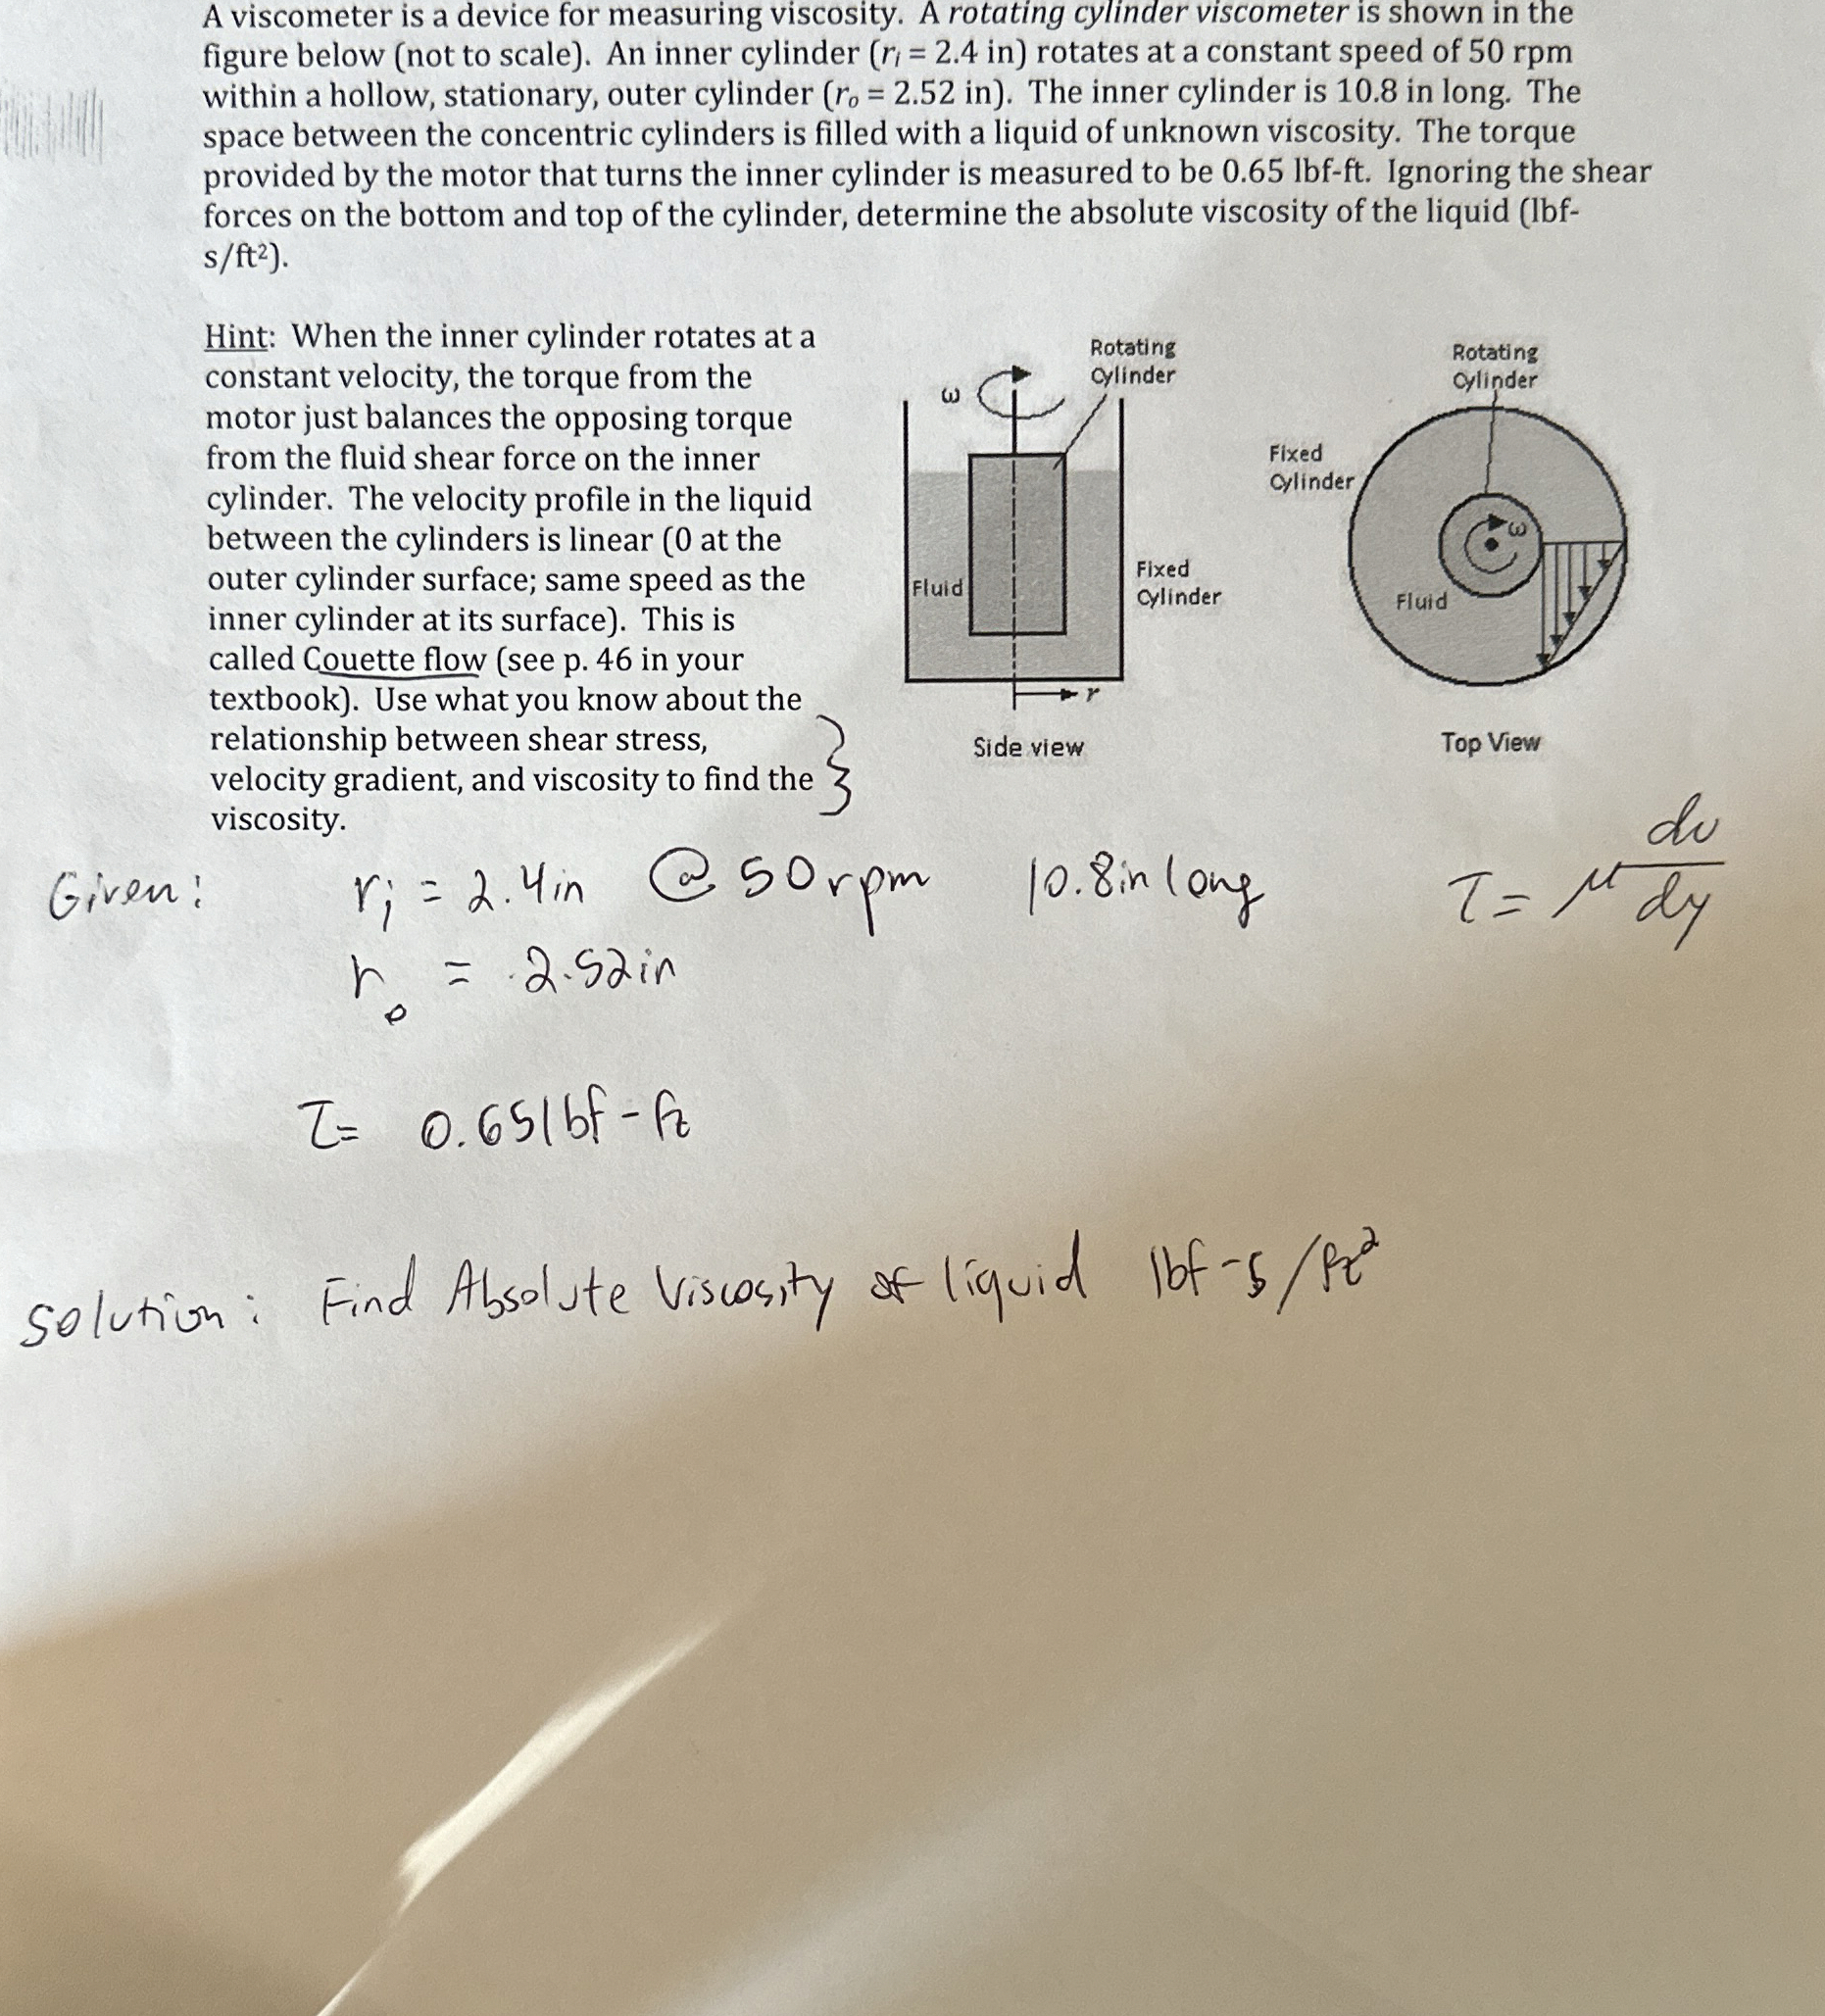 A viscometer is a device for measuring viscosity. A rotating cylinder viscometer is shown in the
figure below (not to scale). An inner cylinder (rᵢ = 2.4 in) rotates at a constant speed of 50 rpm
within a hollow, stationary, outer cylinder (rₒ = 2.52 in). The inner cylinder is 10.8 in long. The
space between the concentric cylinders is filled with a liquid of unknown viscosity. The torque
provided by the motor that turns the inner cylinder is measured to be 0.65 lbf-ft. Ignoring the shear
forces on the bottom and top of the cylinder, determine the absolute viscosity of the liquid (lbf-
s/ft²).
Hint: When the inner cylinder rotates at a
constant velocity, the torque from the
motor just balances the opposing torque
from the fluid shear force on the inner
cylinder. The velocity profile in the liquid
between the cylinders is linear (0 at the
outer cylinder surface; same speed as the
inner cylinder at its surface). This is
called Couette flow (see p. 46 in your
textbook). Use what you know about the
relationship between shear stress,
velocity gradient, and viscosity to find the
viscosity.
ω
Rotating
Cylinder
Fluid
Fixed
Cylinder
r
Side view
Rotating
Cylinder
Fixed
Cylinder
ω
Fluid
Top View
Given: rᵢ = 2.4in @ 50rpm 10.8in long τ = μ du/dy
rₒ = 2.52in
τ = 0.65lbf-ft
Solution: Find Absolute Viscosity of liquid lbf-s/ft²